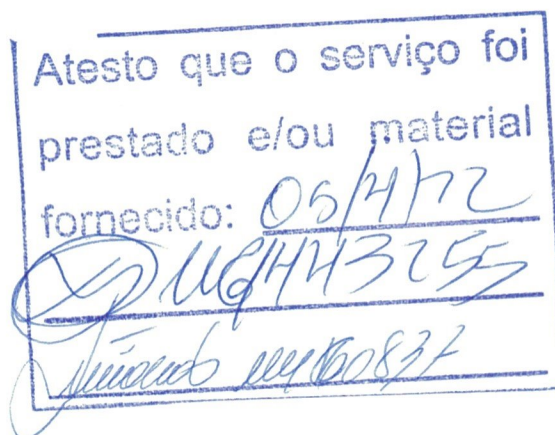 Atesto que o serviço foi
prestado e/ou material
fornecido: 05/4/22
443255
60837